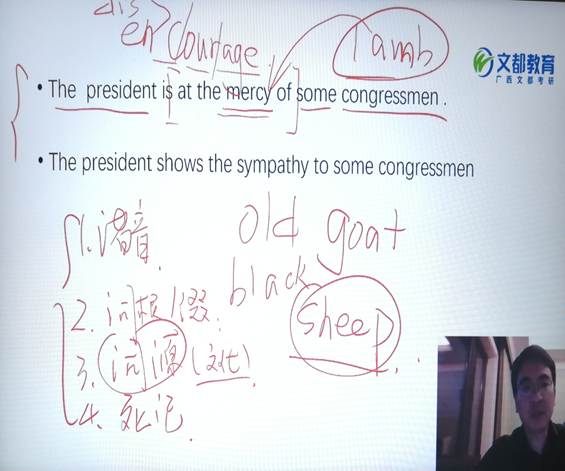 dis
en courage
lamb
文都教育
广西文都考研
• The president is at the mercy of some congressmen .
• The president shows the sympathy to some congressmen
1. 谐音
old goat
black
sheep
2. 词根/缀
3. 词源(文化)
4. 死记